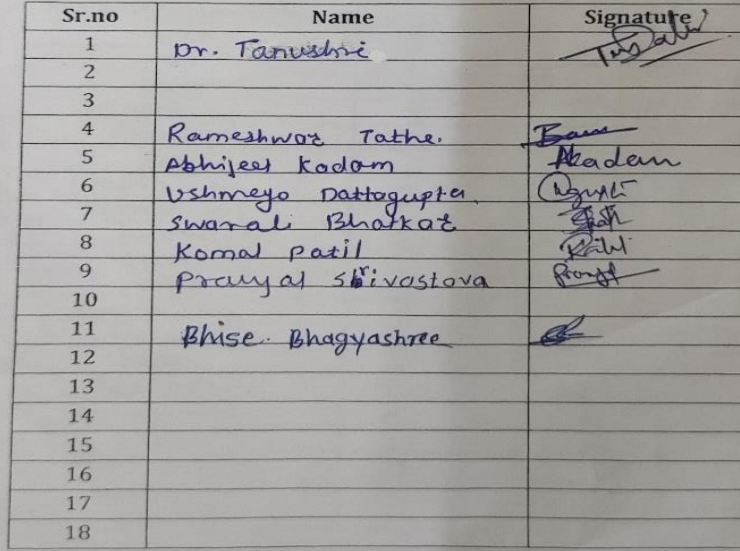 Sr.no Name Signature
1 Dr. Tanushri
2
3
4 Rameshwar Tathe.
5 Abhijeet Kadam Akadam
6 Ushmeyo Dattagupta
7 Swarali Bhatkar
8 Komal Patil
9 Prauyal Srivastova
10
11 Bhise. Bhagyashree
12
13
14
15
16
17
18